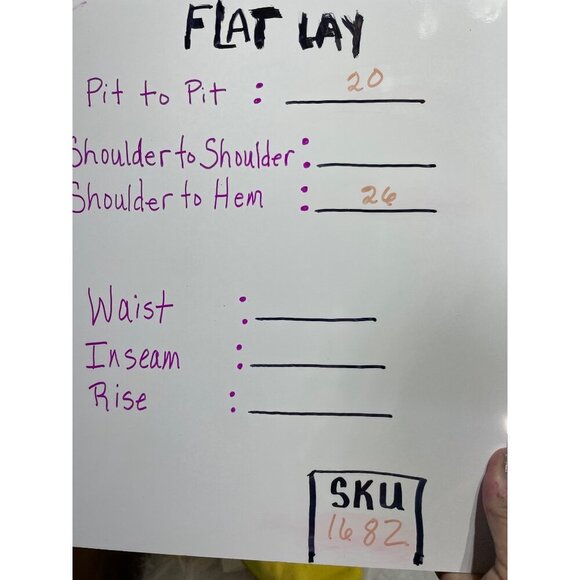 FLAT LAY
Pit to Pit : 20
Shoulder to Shoulder :
Shoulder to Hem : 26
Waist :
Inseam :
Rise :
SKU
1682